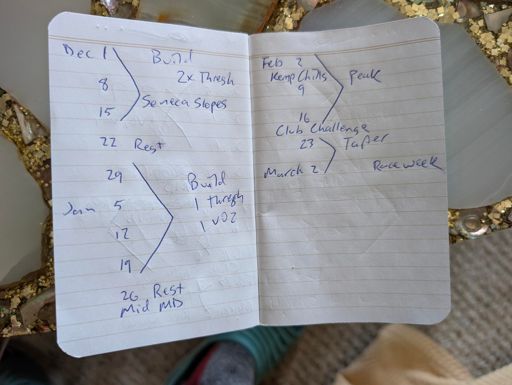 Dec 1
Build
2x Thresh
8
Seneca Slopes
15
22 Rest
29
Build
Jan 5
1 thresh
1 VO2
12
19
26 Rest
Mid MD
Feb 2
Kemp Chills
Peak
9
16
Club Challenge
23
Taper
March 2
Race week